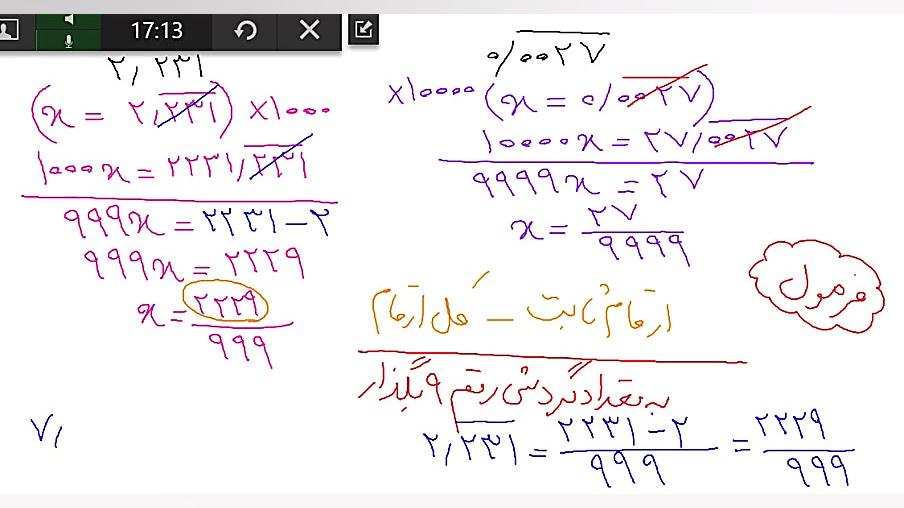 17:13
۲٫۲۳۱
(x = ۲٫۲۳۱) ×۱۰۰۰
۱۰۰۰x = ۲۲۳۱٫۲۳۱
۹۹۹x = ۲۲۳۱ – ۲
۹۹۹x = ۲۲۲۹
x = ۲۲۲۹/۹۹۹
۷٫
۰٫۰۰۲۷
×۱۰۰۰۰ (x = ۰٫۰۰۲۷)
۱۰۰۰۰x = ۲۷٫۰۰۲۷
۹۹۹۹x = ۲۷
x = ۲۷/۹۹۹۹
فرمول
کل ارقام – ارقام ثابت
به تعداد گردش رقم ۹ بگذار
۲٫۲۳۱ = ۲۲۳۱ – ۲/۹۹۹ = ۲۲۲۹/۹۹۹